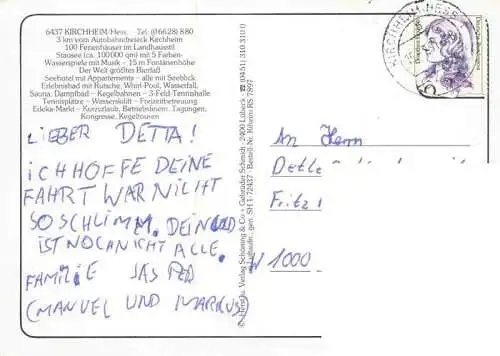 6437 KIRCHHEIM/Hess. Tel: (0 66 28) 8 80
3 km vom Autobahndreieck Kirchheim
100 Ferienhäuser im Landhausstil
Stausee (ca. 100 000 qm) mit 5 Farben-
Wasserspiele mit Musik – 15 m Fontänenhöhe
Der Welt größtes Bierfaß
Seehotel mit Appartements – alle mit Seeblick
Erlebnisbad mit Rutsche, Whirl-Pool, Wasserfall,
Sauna, Dampfbad – Kegelbahnen – 3-Feld-Tennishalle
Tennisplätze – Wasserskilift – Freizeitbetreuung
Edeka-Markt – Kurzurlaub, Betriebsfeiern, Tagungen,
Kongresse, Kegeltouren
LIEBER DETTA!
ICH HOFFE DEINE
FAHRT WAR NILHT
SO SCHLIMM. DEIN GELD
IST NOCH NICHT ALLE.
FAMILIE
(MANUEL UND MARKUS)
Verlag Schöning & Co + Gebrüder Schmidt · 2400 Lübeck ☎ (04 51) 31 03 10
Luftaufn., gen. SH 1-72437 · Bestell-Nr. Kiheim RS 7897
KIRCHHEIM, HESS
An Herrn
Detle
Fritz
W 1000